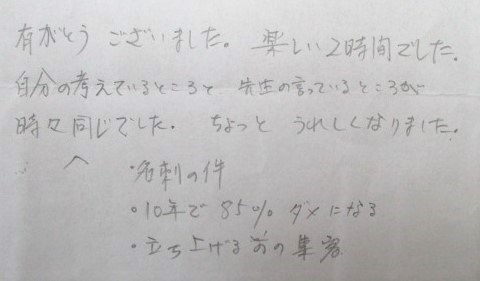 有がとう ございました。 楽しい2時間でした。
自分の考えているところと 先生の言っているところが
時々同じでした。 ちょっと うれしくなりました。
・名刺の件
・10年で 85% ダメになる
・立ち上げる前の集客